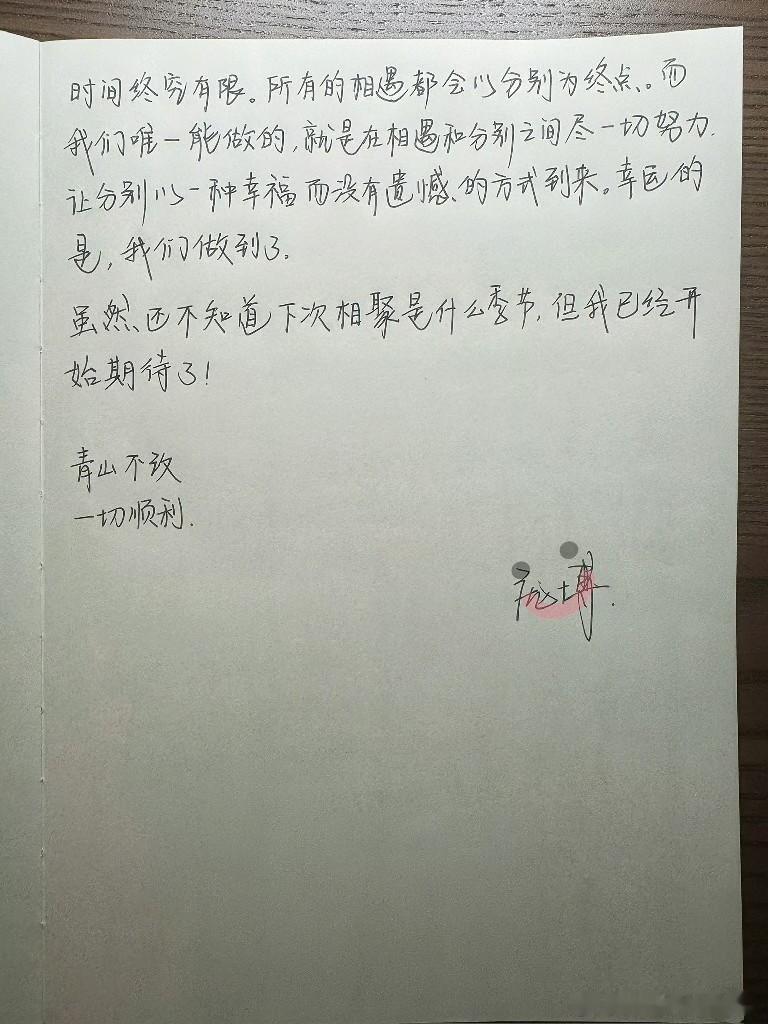 时间终究有限。所有的相遇都会以分别为终点。而
我们唯一能做的,就是在相遇和分别之间尽一切努力.
让分别以一种幸福而没有遗憾的方式到来。幸运的
是,我们做到了。
虽然还不知道下次相聚是什么季节,但我已经开
始期待了!
青山不改
一切顺利.
庞博.